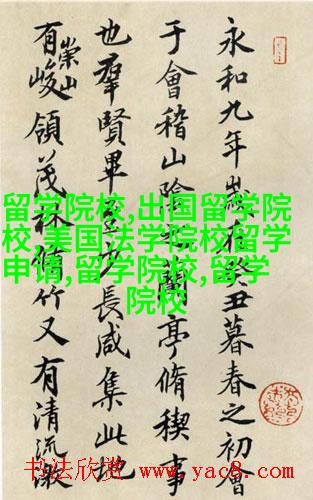 永和九年歲在癸丑暮春之初會
于會稽山陰之蘭亭脩稧事
也羣賢畢至少長咸集此地
有崇山峻領茂林脩竹又有清流激
留学院校,出国留学院
校,美国法学院校留学
申请,留学院校,留学
院校
书法欣赏 www.yac8.com